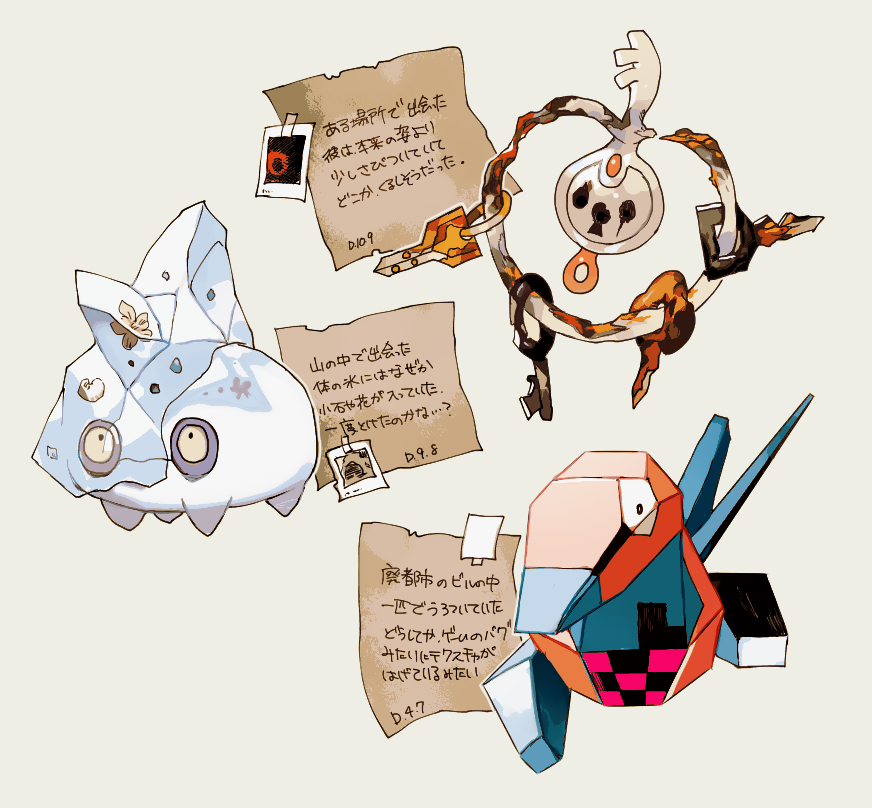 ある場所で出会った
彼は、本来の姿より
少しさびついていて
どこか、くるしそうだった。
D.10.9
山の中で出会った
体の氷にはなぜか
小石や花が入っていた。
一度とけたのかな…?
D.9.8
廃都市のビルの中
一匹でうろついていた
どうしてか、ゲームのバグ
みたいにテクスチャが
はげているみたい
D.4.7